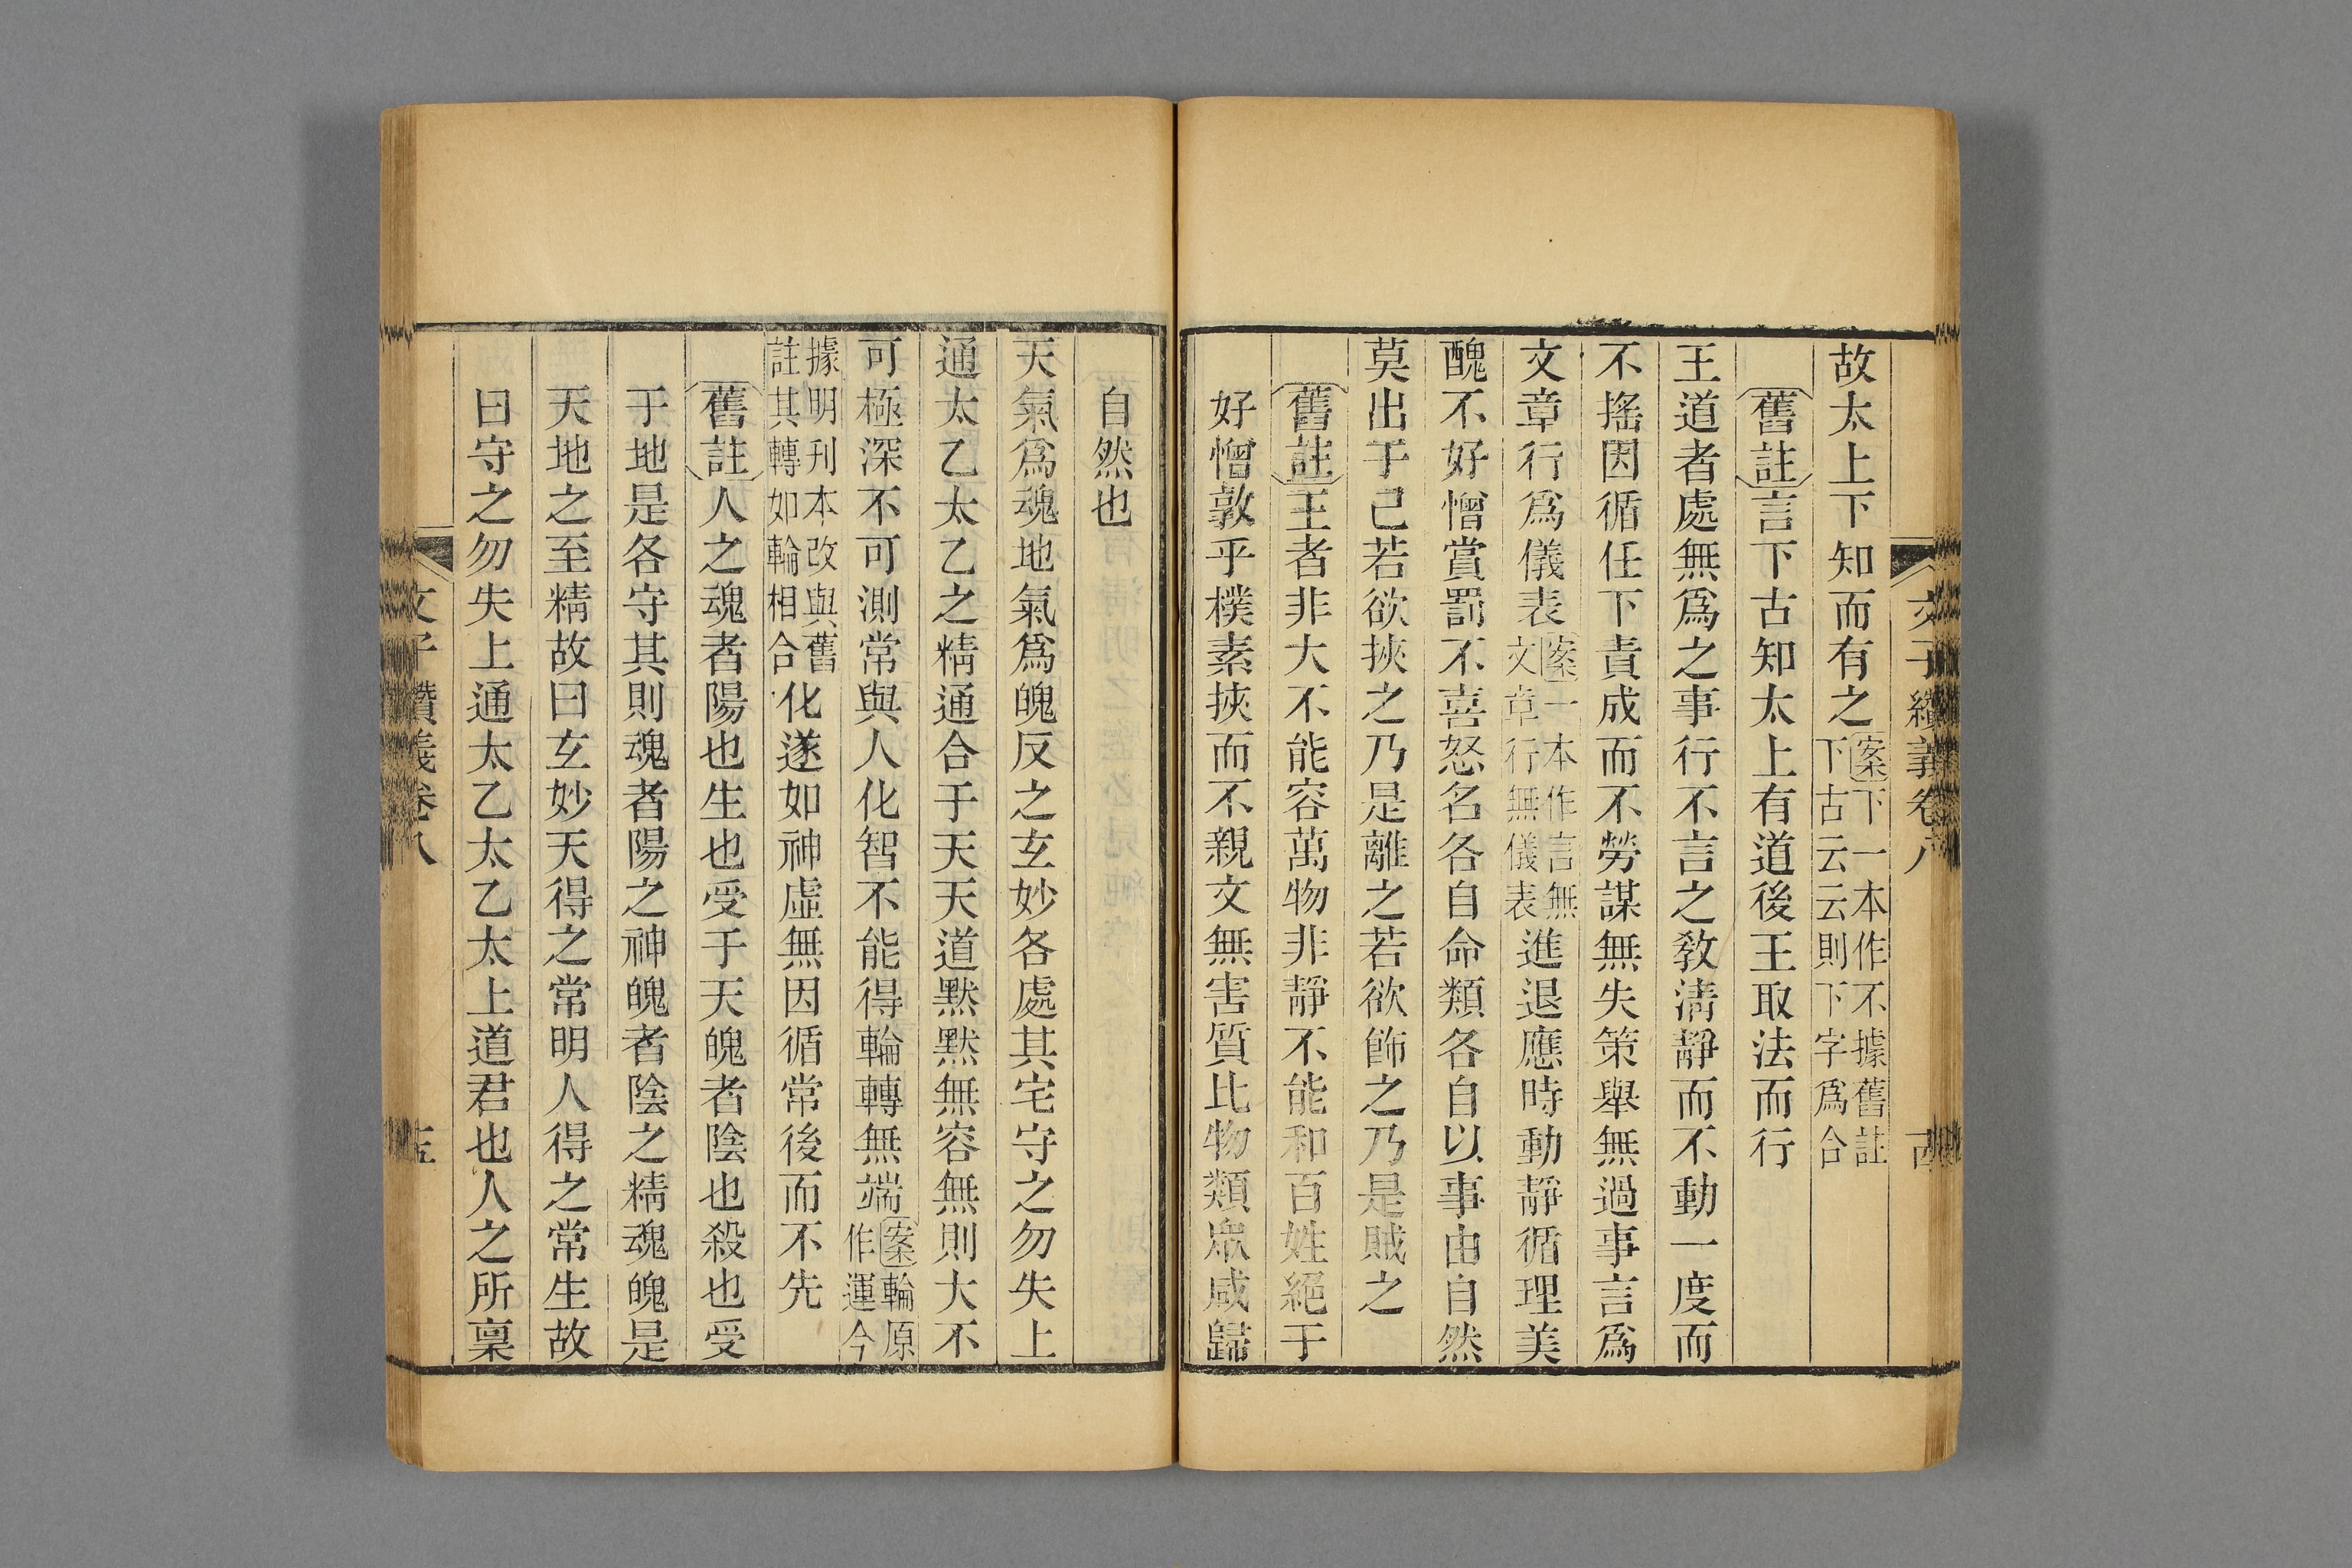 文子纘義卷八
故太上下知而有之案下一本作不據舊註下古云云則下字爲合
舊註言下古知太上有道後王取法而行
王道者處無爲之事行不言之敎淸靜而不動一度而
不搖因循任下責成而不勞謀無失策舉無過事言爲
文章行爲儀表案一本作言無文章行無儀表進退應時動靜循理美
醜不好憎賞罰不喜怒名各自命類各自以事由自然
莫出于己若欲挾之乃是離之若欲飾之乃是賊之
舊註王者非大不能容萬物非靜不能和百姓絕于
好憎敦乎樸素挾而不親文無害質比物類眾咸歸
自然也
天氣爲魂地氣爲魄反之玄妙各處其宅守之勿失上
通太乙太乙之精通合于天天道默默無容無則大不
可極深不可測常與人化智不能得輪轉無端案輪原作運今
據明刊本改與舊註其轉如輪相合化遂如神虛無因循常後而不先
舊註人之魂者陽也生也受于天魄者陰也殺也受
于地是各守其則魂者陽之神魄者陰之精魂魄是
天地之至精故曰玄妙天得之常明人得之常生故
曰守之勿失上通太乙太乙太上道君也人之所稟
文子纘義卷八